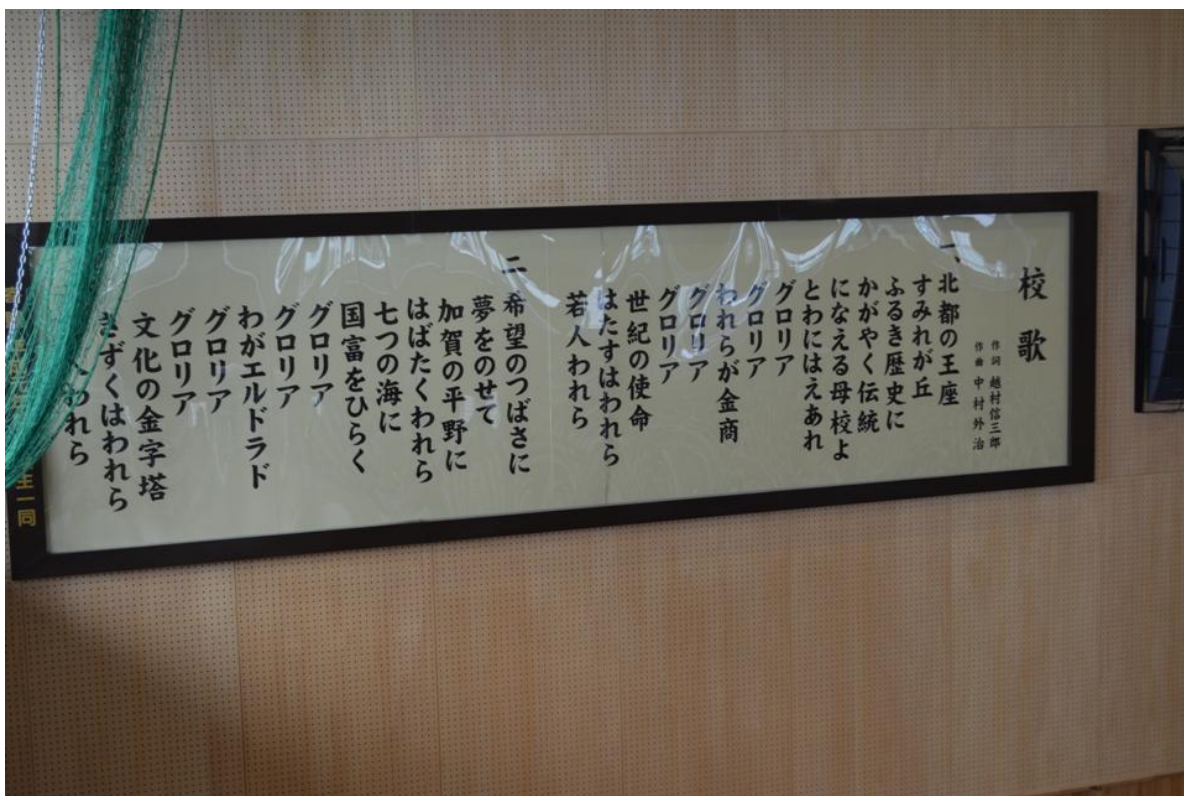 校歌
作詞 越村信三郎
作曲 中村外治
一、北都の王座
すみれが丘
ふるき歴史に
かがやく伝統
になえる母校よ
とわにはえあれ
グロリア
グロリア
われらが金商
グロリア
グロリア
世紀の使命
はたすはわれら
若人われら
二 希望のつばさに
夢をのせて
加賀の平野に
はばたくわれら
七つの海に
国富をひらく
グロリア
グロリア
わがエルドラド
グロリア
グロリア
文化の金字塔
きずくはわれら
人われら
生一同